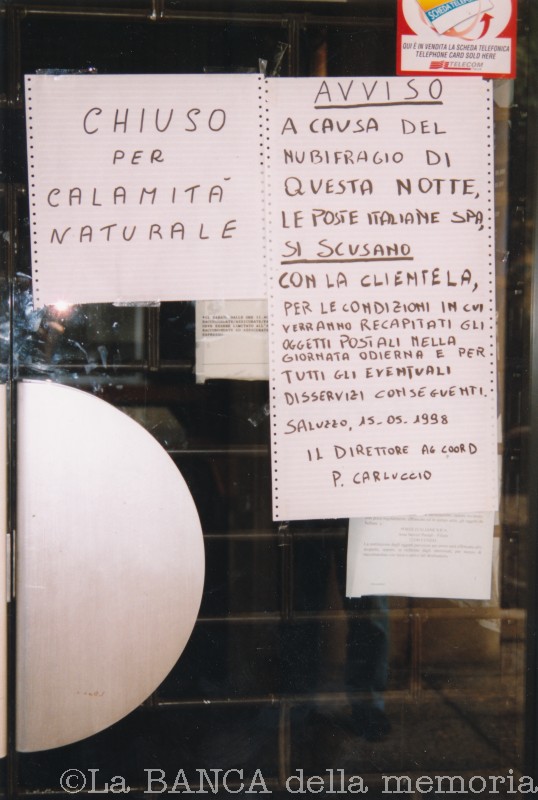 SCHEDA TELEFONICA
QUI È IN VENDITA LA SCHEDA TELEFONICA
TELEPHONE CARD SOLD HERE
TELECOM
CHIUSO
PER
CALAMITÀ
NATURALE
AVVISO
A CAUSA DEL
NUBIFRAGIO DI
QUESTA NOTTE,
LE POSTE ITALIANE SPA,
SI SCUSANO
CON LA CLIENTELA,
PER LE CONDIZIONI IN CUI
VERRANNO RECAPITATI GLI
OGGETTI POSTALI NELLA
GIORNATA ODIERNA E PER
TUTTI GLI EVENTUALI
DISSERVIZI CONSEGUENTI.
SALUZZO, 15-05-1998
IL DIRETTORE AG COORD
P. CARLUCCIO
©La BANCA della memoria